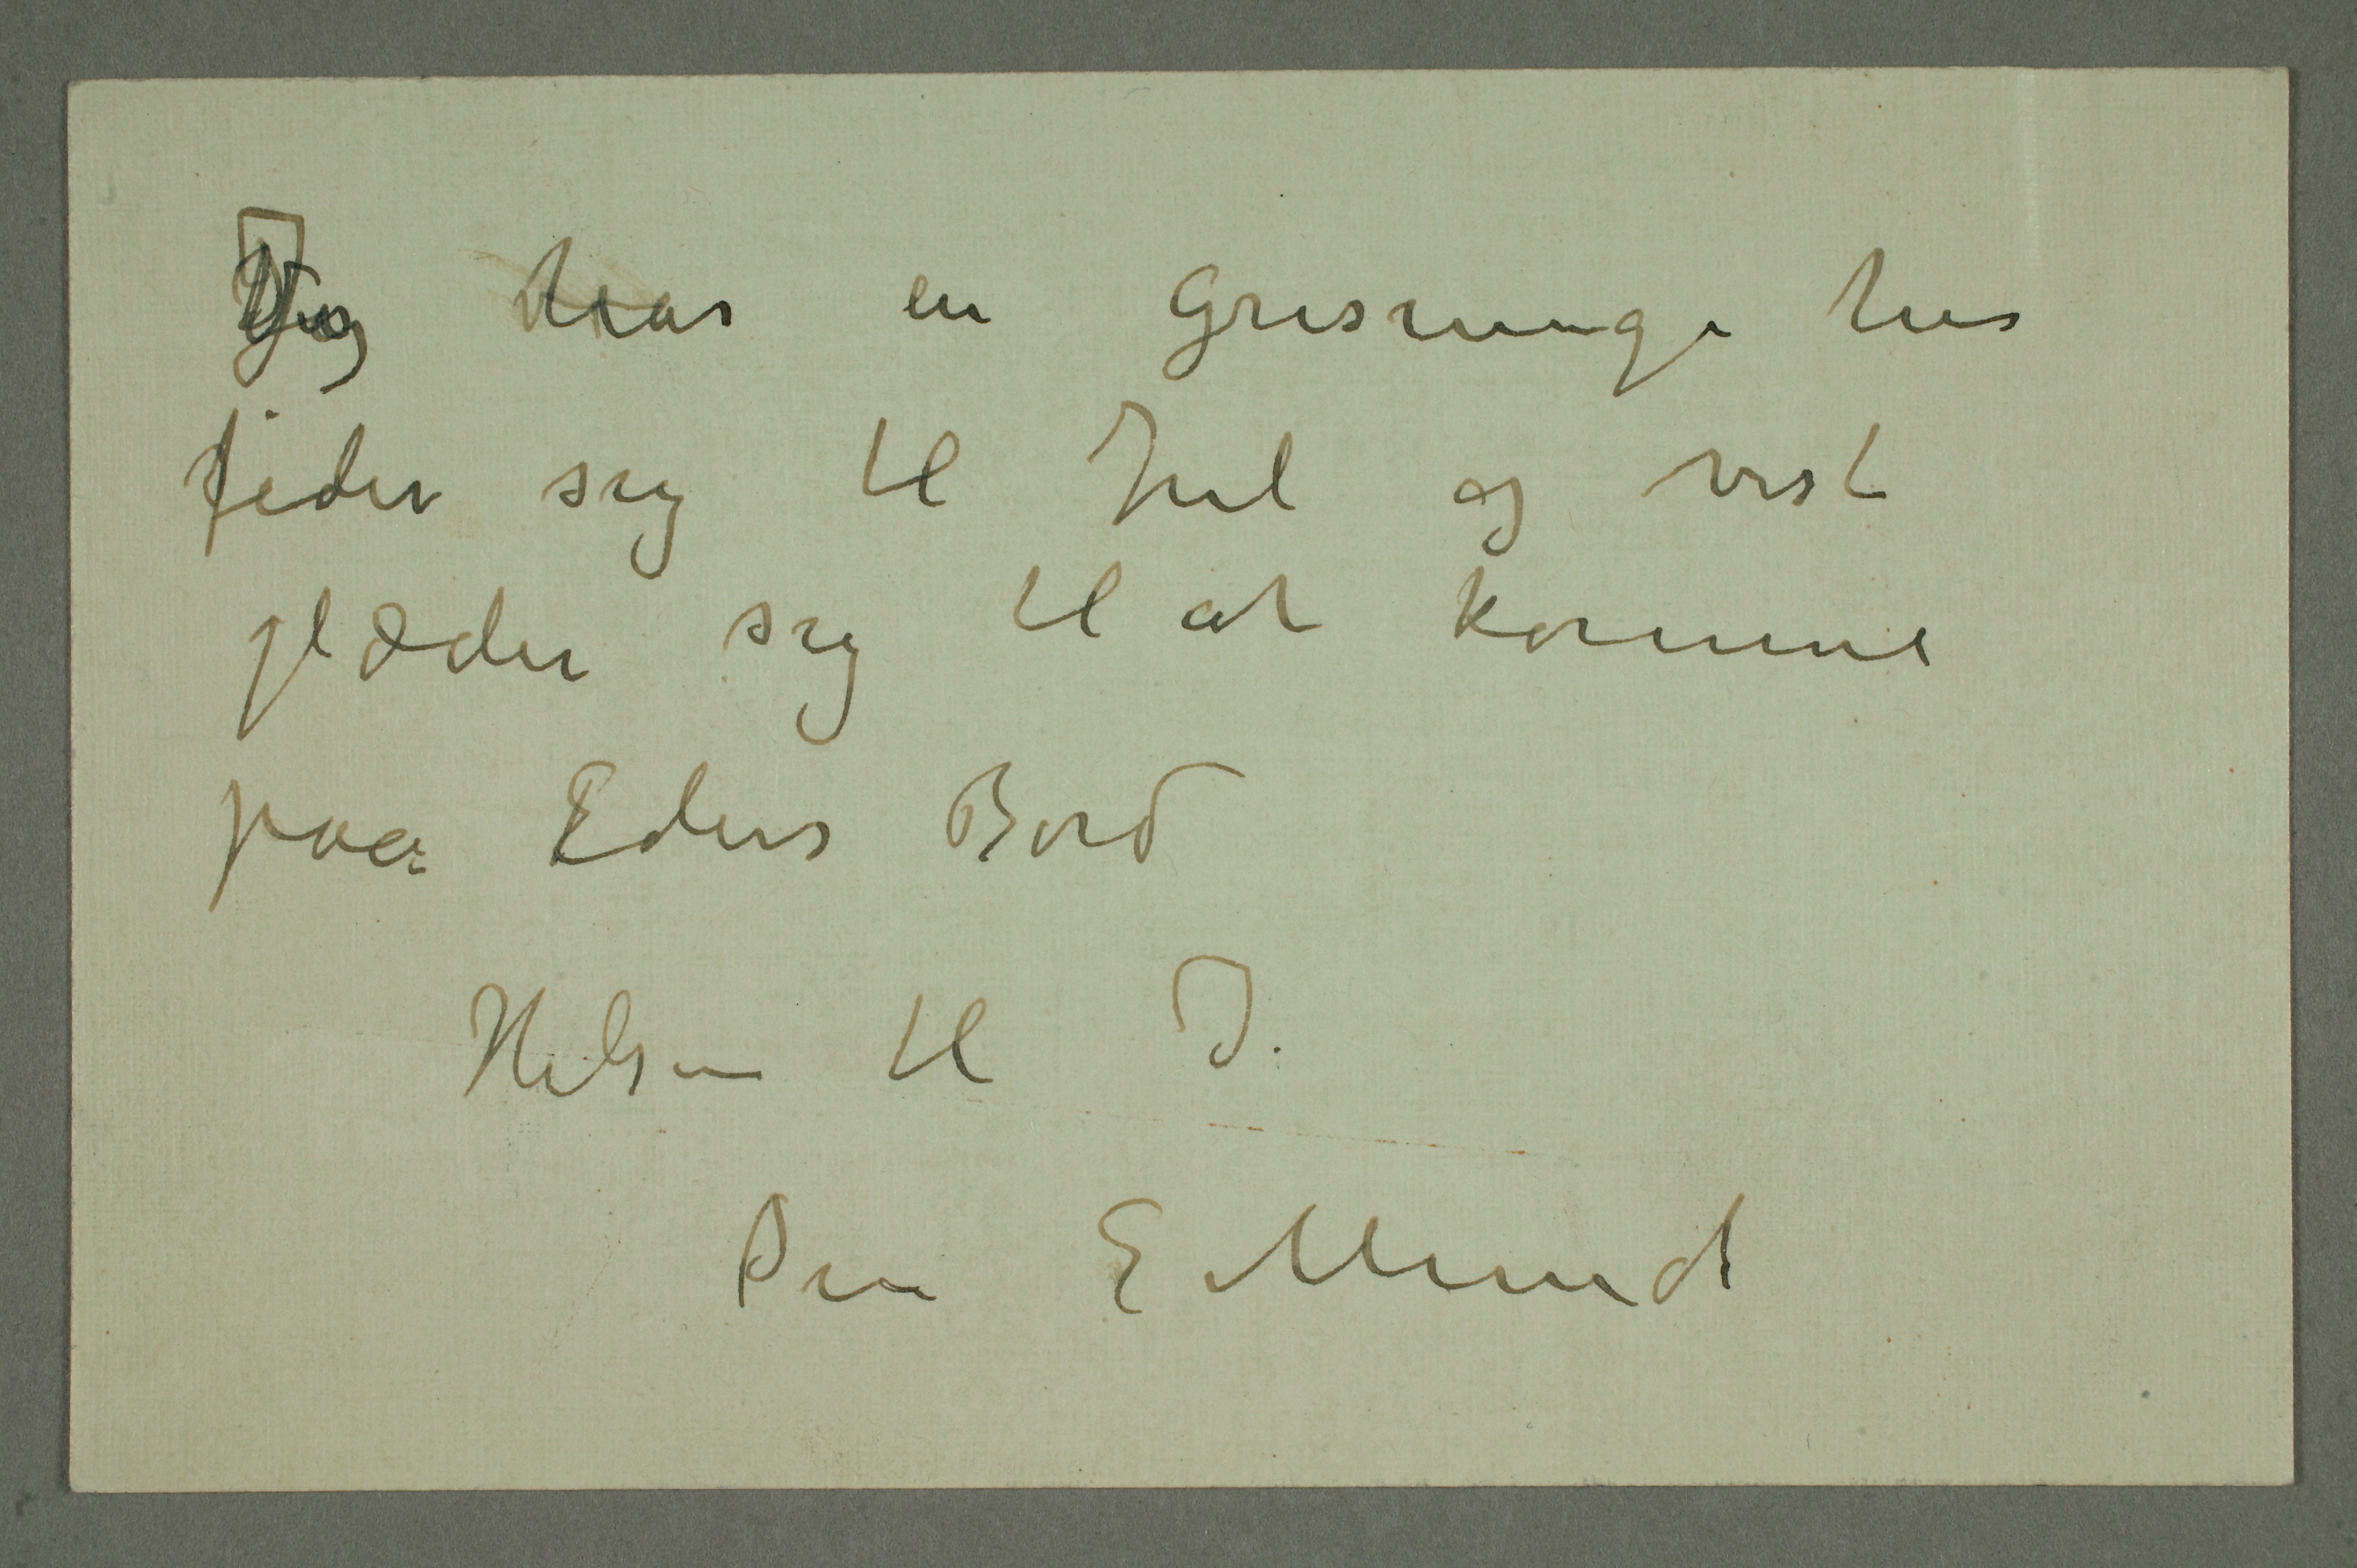 Jeg har en Grisunge her
feder sig til Jul og vist
glæder sig til at komme
paa Eders Bord
Hilsen til J.
Din E Munch